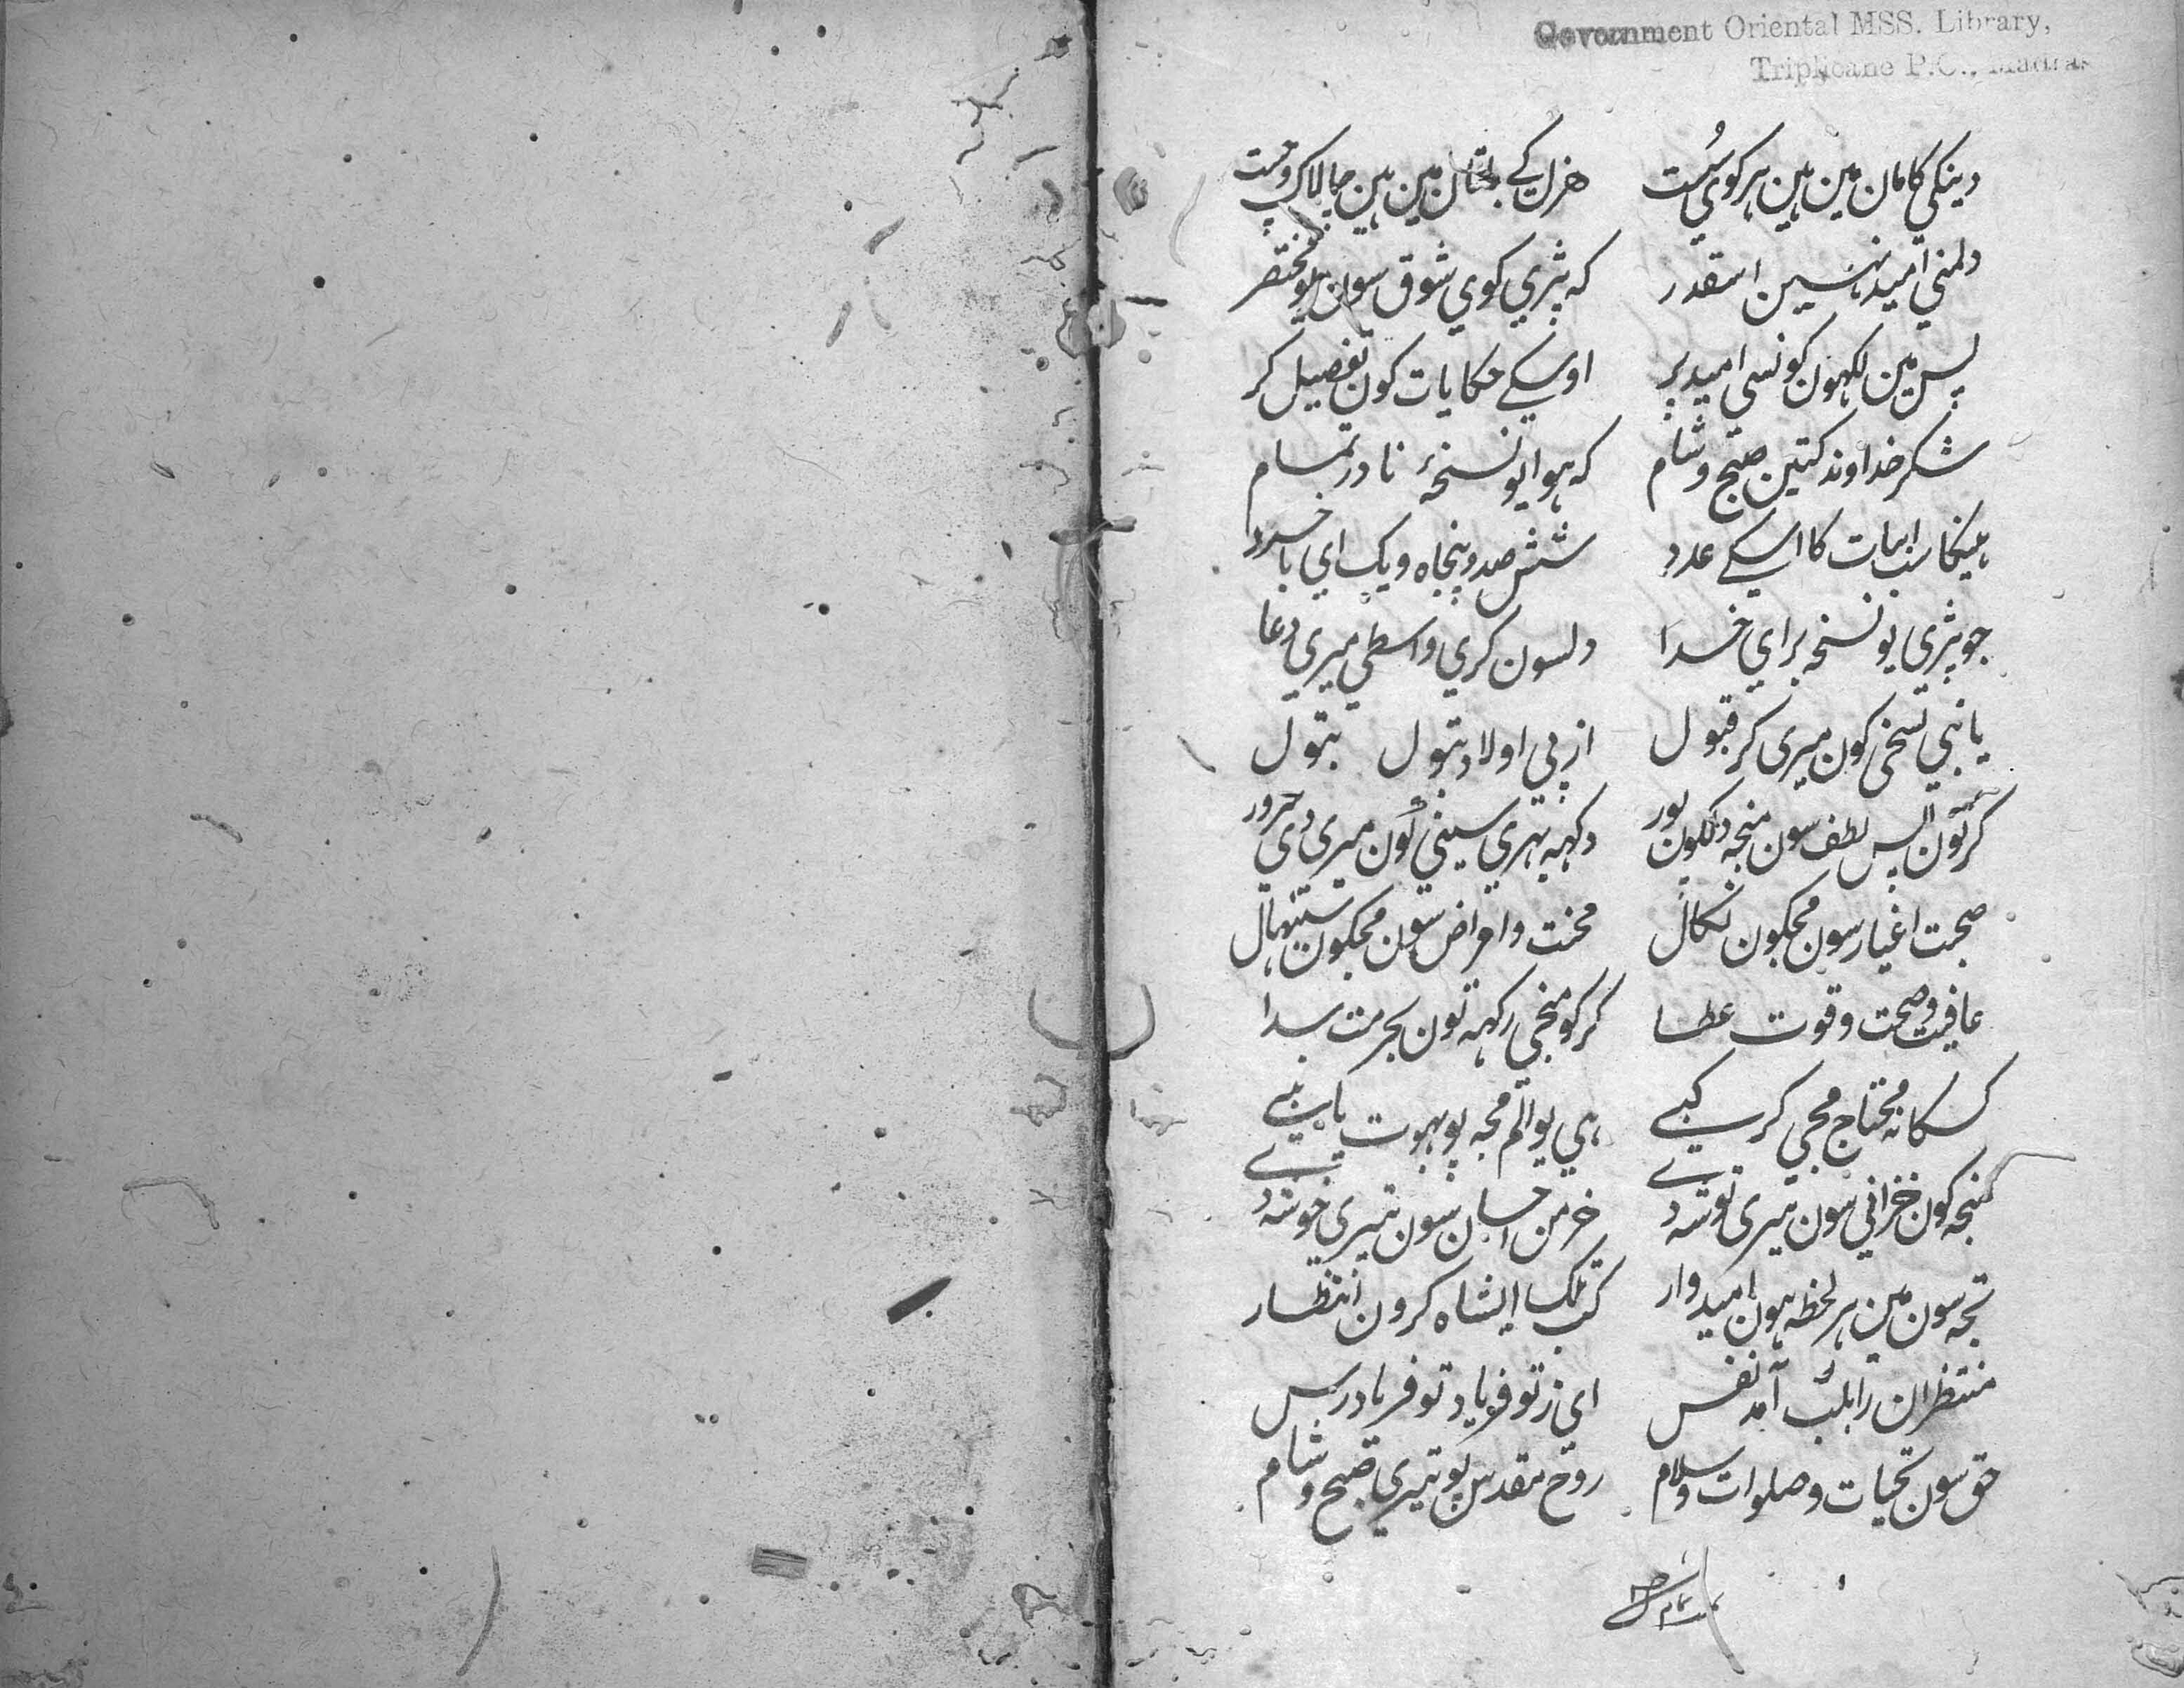 Government Oriental MSS. Library,
Triplicane P.O., Madras
دینکی کامان مین ہین ہر کوی سُست هزل کے مین ہین چالاک و چست
دلمنی امید نہین اسقدر کہ پڑی کوی شوق سون یو مختصر
پس مین لکہون کونسی امید پر اوسکے حکایات کون تفصیل کر
شکر خداوند کتین صبح و شام کہ ہوا یو نسخۂ نادر تمام
ہینگا سب ابیات کا اسکے عدد شش صد و پنجاه و یک ای با خرد
جو پڑی یو نسخہ برای خدا دلسون کری واسطی میری دعا
یا نبی نسخی کون میری کر قبول از پی اولاد بتول بتول
کر تون اپس لطف سون منجہ دلکون نور دکہہ بہری سینی کون میری دی سرور
صحبت اغیار سون مجکون نکال محنت و امراض سون مجکون سنبہال
عافیت و صحت و قوت عطا کر کو منجی رکہہ تون بحرمت سدا
کسکا نہ محتاج مجی کر کبے ہی یو الم مجہ پو بہوت یا نبے
منجہ کون خزانی سون تیری توشہ دے خرمن احسان سون تیری خوشہ دے
تجہ سون مین ہر لحظہ ہون امیدوار کب تلک ایشاہ کرون انتظار
منتظران را بلب آمد نفس ای ز تو فریاد تو فریاد رس
حق سون تحیات و صلوات و سلام روح مقدس پو تیری صبح و شام